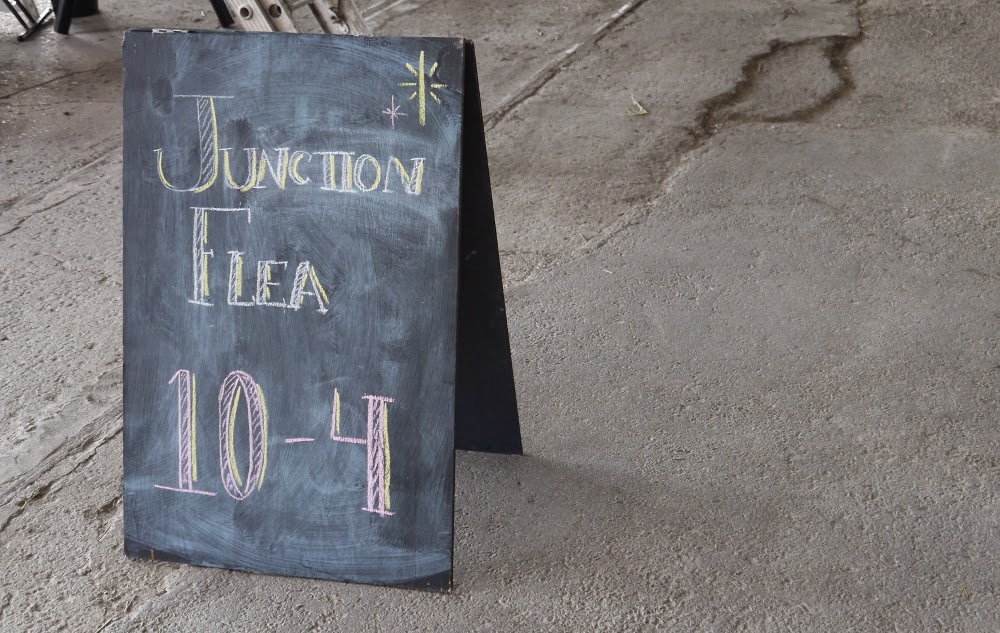 JUNCTION
FLEA
10-4